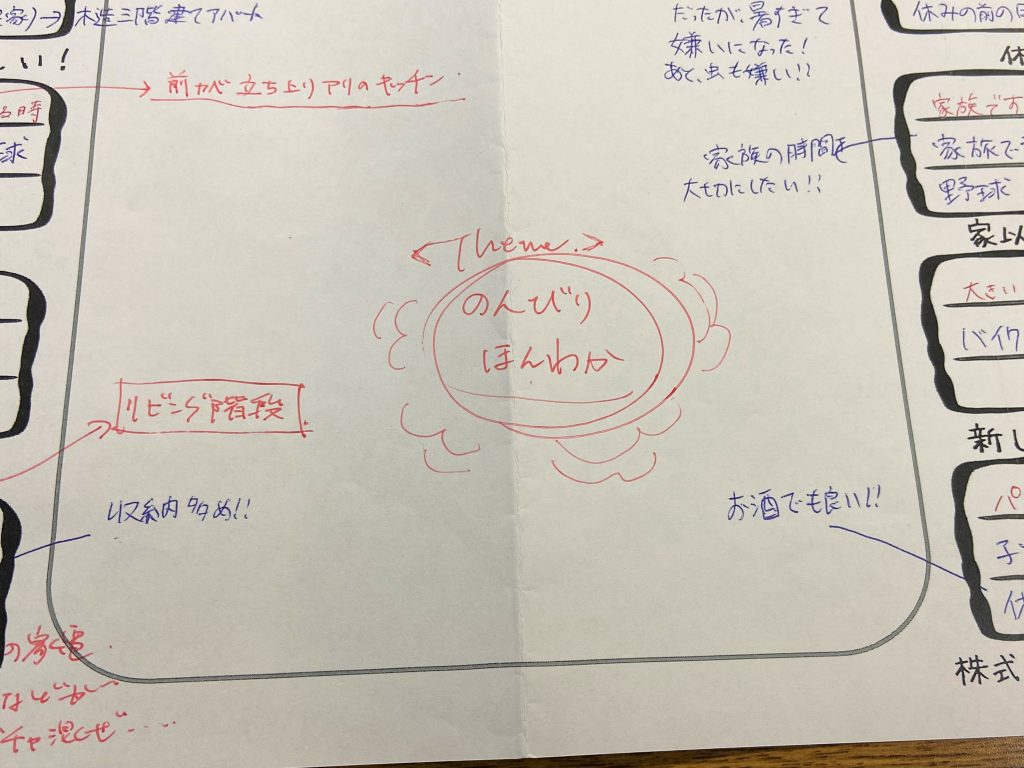 家)→木造三階建てアパート
しい!
前カベ立ち上りアリのキッチン
る時
球
だったが、暑すぎて
嫌いになった!
あと、虫も嫌い!!
休みの前の日
休
家族です
家族で
野球
家族の時間を
大切にしたい!!
家以
<Theme.>
のんびり
ほんわか
大きい
バイク
新し
リビング階段
収納多め!!
お酒でも良い!!
パ
子
休
株式
の家電.
などが
チャ混ぜ....